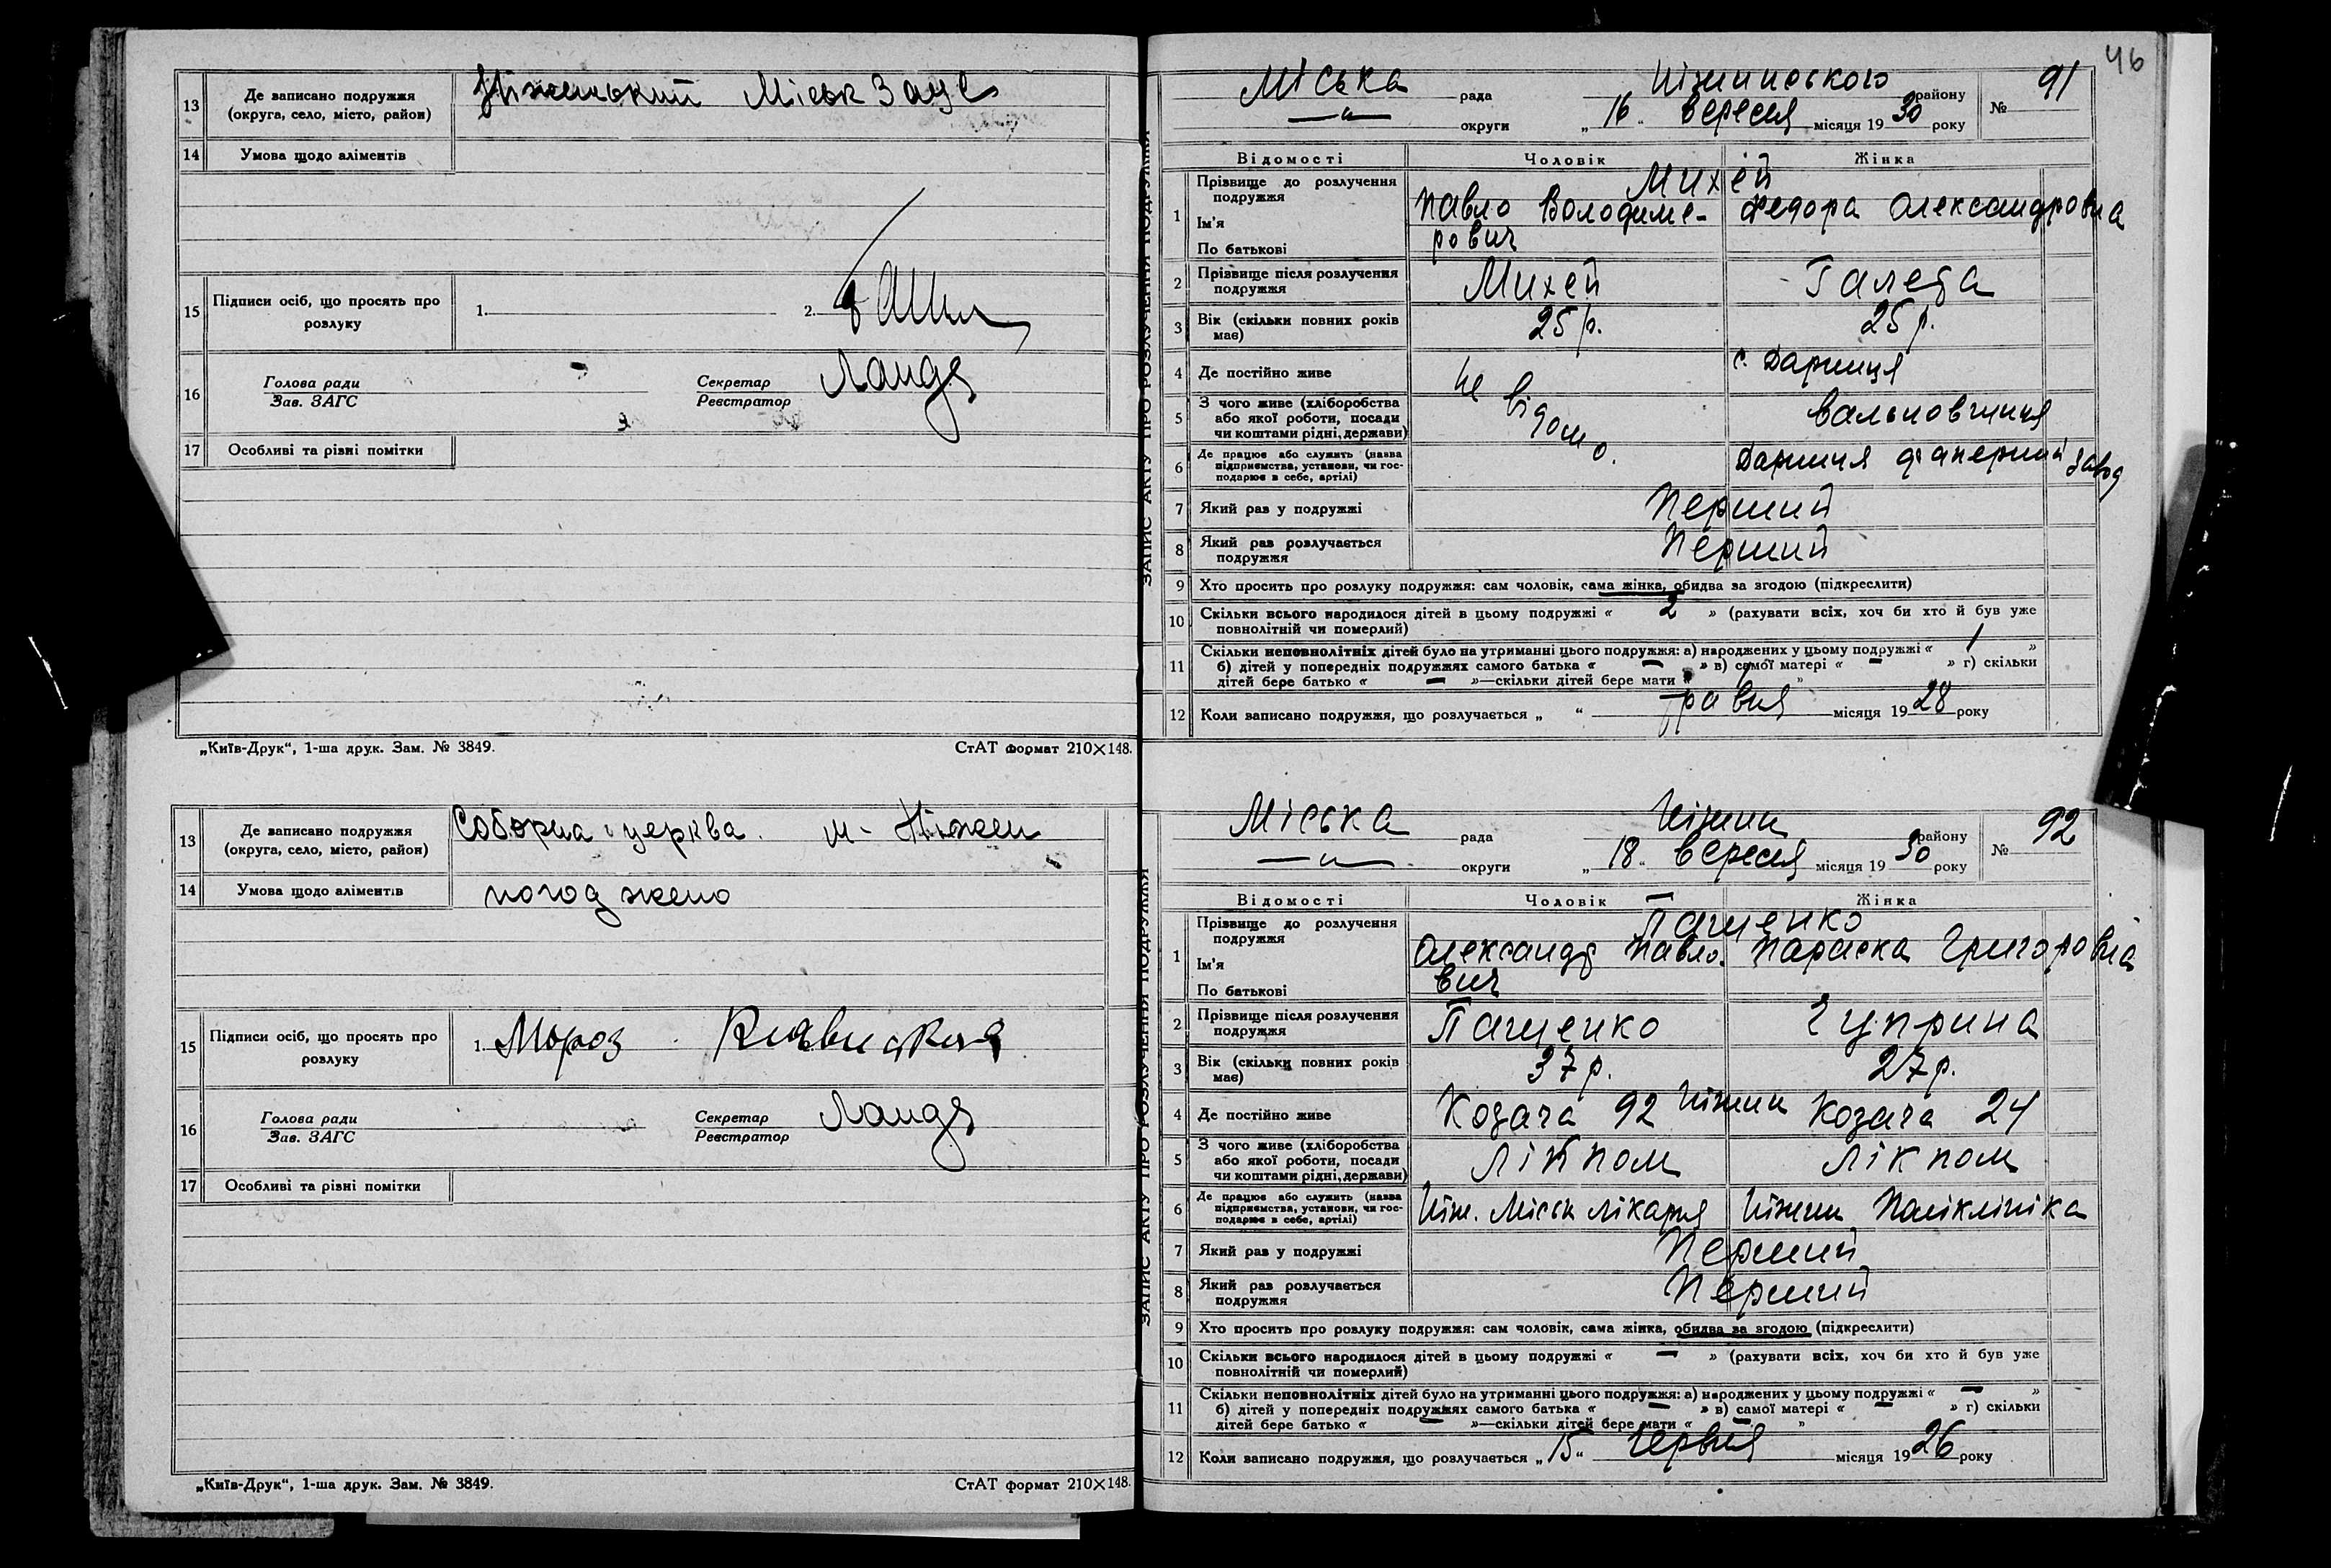 13 Де записано подружжя (округа, село, місто, район) Ніженський Міськ Загс
14 Умова щодо аліментів
15 Підписи осіб, що просять про розлуку 1. 2.
16 Голова ради Зав. ЗАГС Секретар Реєстратор Ландя
17 Особливі та різні помітки
„Київ-Друк“, 1-ша друк. Зам. № 3849. СтАТ формат 210×148.
13 Де записано подружжя (округа, село, місто, район) Соборна церква. м- Ніжен
14 Умова щодо аліментів погоджено
15 Підписи осіб, що просять про розлуку 1. Мороз
16 Голова ради Зав. ЗАГС Секретар Реєстратор Ландя
17 Особливі та різні помітки
„Київ-Друк“, 1-ша друк. Зам. № 3849. СтАТ формат 210×148.
46
ЗАПИС АКТУ ПРО РОЗЛУЧЕННЯ ПОДРУЖЖЯ
Міська рада Ніжинського району № 91
—„— округи „16“ вересня місяця 1930 року
Відомості Чоловік Жінка
1 Прізвище до розлучення подружжя Михей
Ім'я Павло Володиме- Федора Олександровна
По батькові рович
2 Прізвище після розлучення подружжя Михей Галега
3 Вік (скільки повних років має) 25 р. 25 р.
4 Де постійно живе Не відомо. с. Дарниця
5 З чого живе (хліборобства або якої роботи, посади чи коштами рідні, держави)
6 Де працює або служить (назва підприємства, установи, чи господарює в себе, артілі) Дарниця фанерний завод
7 Який раз у подружжі Перший
8 Який раз розлучається подружжя Перший
9 Хто просить про розлуку подружжя: сам чоловік, сама жінка, обидва за згодою (підкреслити)
10 Скільки всього народилося дітей в цьому подружжі « 2 » (рахувати всіх, хоч би хто й був уже
повнолітній чи померлий)
11 Скільки неповнолітніх дітей було на утриманні цього подружжя: а) народжених у цьому подружжі « 1 »
б) дітей у попередніх подружжях самого батька « — » в) самої матері « — » г) скільки
дітей бере батько « — »—скільки дітей бере мати « »
12 Коли записано подружжя, що розлучається „ “ травня місяця 1928 року
ЗАПИС АКТУ ПРО РОЗЛУЧЕННЯ ПОДРУЖЖЯ
Міська рада Ніжин району № 92
—„— округи „18“ вересня місяця 1930 року
Відомості Чоловік Жінка
1 Прізвище до розлучення подружжя Пащенко
Ім'я Олександр Павло- Параска Григоровна
По батькові вич
2 Прізвище після розлучення подружжя Пащенко Чуприна
3 Вік (скільки повних років має) 37 р. 27 р.
4 Де постійно живе Козача 92 Ніжин Козача 24
5 З чого живе (хліборобства або якої роботи, посади чи коштами рідні, держави) Лікпом Лікпом
6 Де працює або служить (назва підприємства, установи, чи господарює в себе, артілі) Ніж. Міськ лікарня Ніжин Поліклініка
7 Який раз у подружжі Перший
8 Який раз розлучається подружжя Перший
9 Хто просить про розлуку подружжя: сам чоловік, сама жінка, обидва за згодою (підкреслити)
10 Скільки всього народилося дітей в цьому подружжі « — » (рахувати всіх, хоч би хто й був уже
повнолітній чи померлий)
11 Скільки неповнолітніх дітей було на утриманні цього подружжя: а) народжених у цьому подружжі « — »
б) дітей у попередніх подружжях самого батька « — » в) самої матері « — » г) скільки
дітей бере батько « — »—скільки дітей бере мати « — »
12 Коли записано подружжя, що розлучається „15“ червня місяця 1926 року